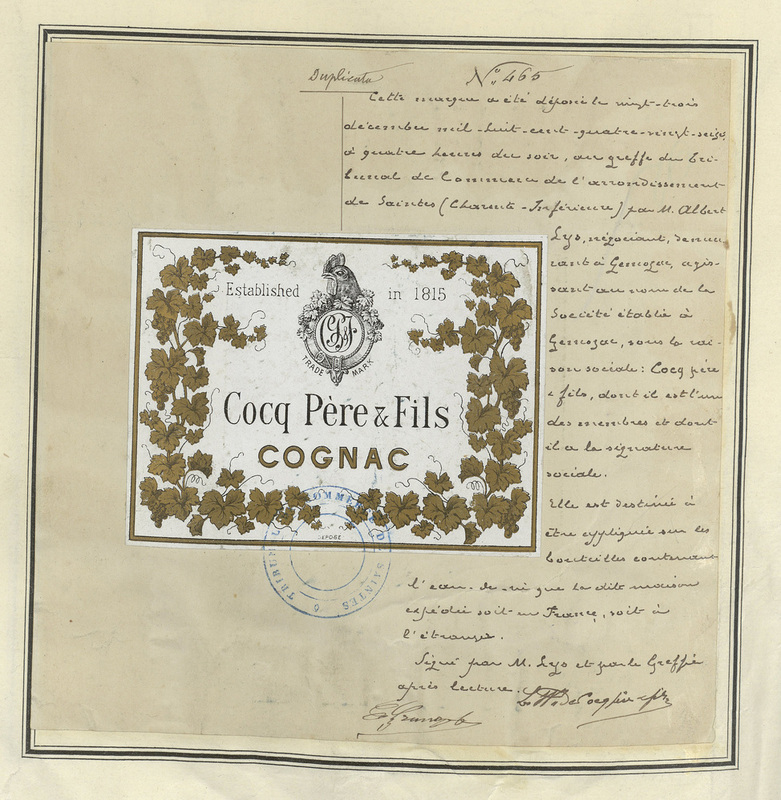 Duplicata
N° 465
Cette marque a été déposée le vingt-trois
décembre mil-huit-cent-quatre-vingt-seize
à quatre heures du soir, au greffe du Tri-
bunal de Commerce de l'arrondissement
de Saintes (Charente-Inférieure) par M. Albert
Lys, négociant, demeu
rant à Gemozac, agis-
sant au nom de la
Société établie à
Gemozac, sous la rai-
son sociale: Cocq père
& fils, dont il est l'un
des membres et dont
il a la signature
sociale.
Elle est destinée à
être appliquée sur les
bouteilles contenant
l'eau-de-vie que la dite maison
expédie soit en France, soit à
l'étranger.
Signé par M. Lys et par le Greffier
après lecture.
Established in 1815
TRADE MARK
Cocq Père & Fils
COGNAC
DÉPOSÉ
TRIBUNAL DE COMMERCE DE SAINTES